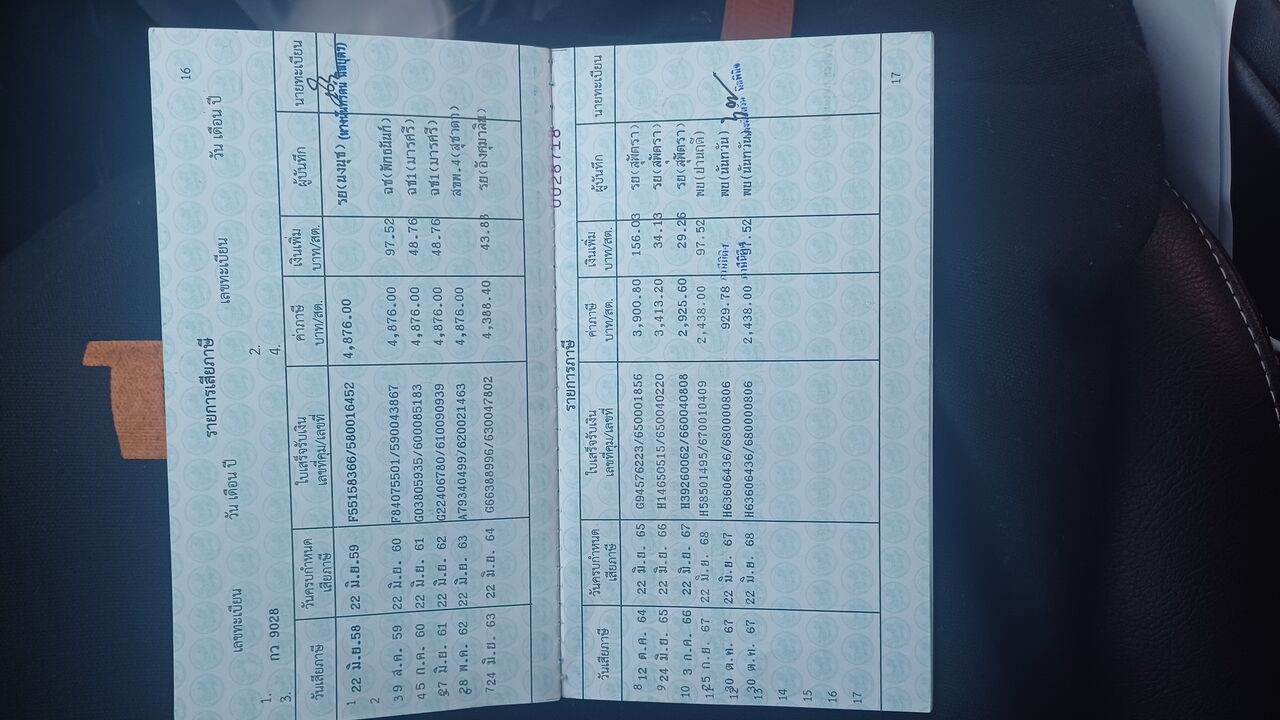 16
รายการเสียภาษี
เลขทะเบียน วัน เดือน ปี เลขทะเบียน วัน เดือน ปี
1. กว 9028 2.
3. 4.
วันเสียภาษี วันครบกำหนดเสียภาษี ใบเสร็จรับเงิน เลขที่คุม/เลขที่ ค่าภาษี บาท/สต. เงินเพิ่ม บาท/สต. ผู้บันทึก นายทะเบียน
1 22 มิ.ย.58 22 มิ.ย.59 F55158366/580016452 4,876.00 รย(นงนุช)
2
3 9 ส.ค. 59 22 มิ.ย. 60 F84075501/590043867 4,876.00 97.52 ฉช(พักธนันก์)
4 5 ก.ค. 60 22 มิ.ย. 61 G03805935/600085183 4,876.00 48.76 ฉช1(มารศรี)
27 มิ.ย. 61 22 มิ.ย. 62 G22406780/610090939 4,876.00 48.76 ฉช1(มารศรี)
8 พ.ค. 62 22 มิ.ย. 63 A79340499/620021463 4,876.00 สขพ.4(สุชาดา)
7 24 มิ.ย. 63 22 มิ.ย. 64 G66388996/630047802 4,388.40 43.88 รย(อังศุมาลิน)
0028718
รายการภาษี
วันเสียภาษี วันครบกำหนดเสียภาษี ใบเสร็จรับเงิน เลขที่คุม/เลขที่ ค่าภาษี บาท/สต. เงินเพิ่ม บาท/สต. ผู้บันทึก นายทะเบียน
8 12 ต.ค. 64 22 มิ.ย. 65 G94576223/650001856 3,900.80 156.03 รย(สุพัตรา)
9 24 มิ.ย. 65 22 มิ.ย. 66 H14650515/650040220 3,413.20 34.13 รย(สุพัตรา)
10 3 ก.ค. 66 22 มิ.ย. 67 H39260062/660040808 2,925.60 29.26 รย(สุพัตรา)
25 ก.ย. 67 22 มิ.ย. 68 H58501495/670010409 2,438.00 97.52 พย(ปานฤดี)
30 ต.ค. 67 22 มิ.ย. 67 H63606436/680000806 929.78 พย(นันทวัน)
13 30 ต.ค. 67 22 มิ.ย. 68 H63606436/680000806 2,438.00 พย(นันทวัน)
14
15
16
17
17